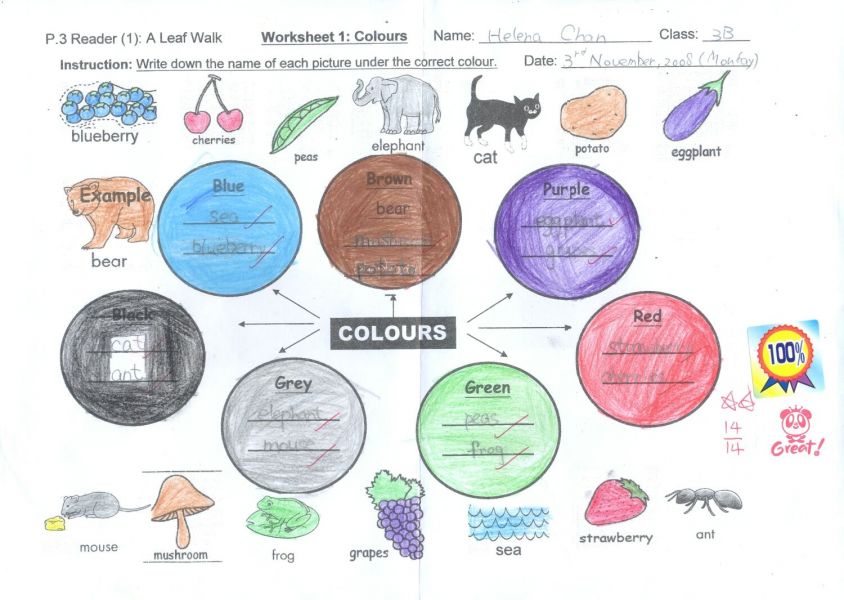 P.3 Reader (1): A Leaf Walk Worksheet 1: Colours Name: Helena Chan Class: 3B
Instruction: Write down the name of each picture under the correct colour. Date: 3rd November, 2008 (Monday)
blueberry cherries peas elephant cat potato eggplant
Example
bear
Blue
sea
blueberry
Brown
bear
mushroom
potato
Purple
eggplant
grapes
Black
cat
ant
COLOURS
Red
strawberry
cherries
Grey
elephant
mouse
Green
peas
frog
100%
14
14
Great!
mouse mushroom frog grapes sea strawberry ant